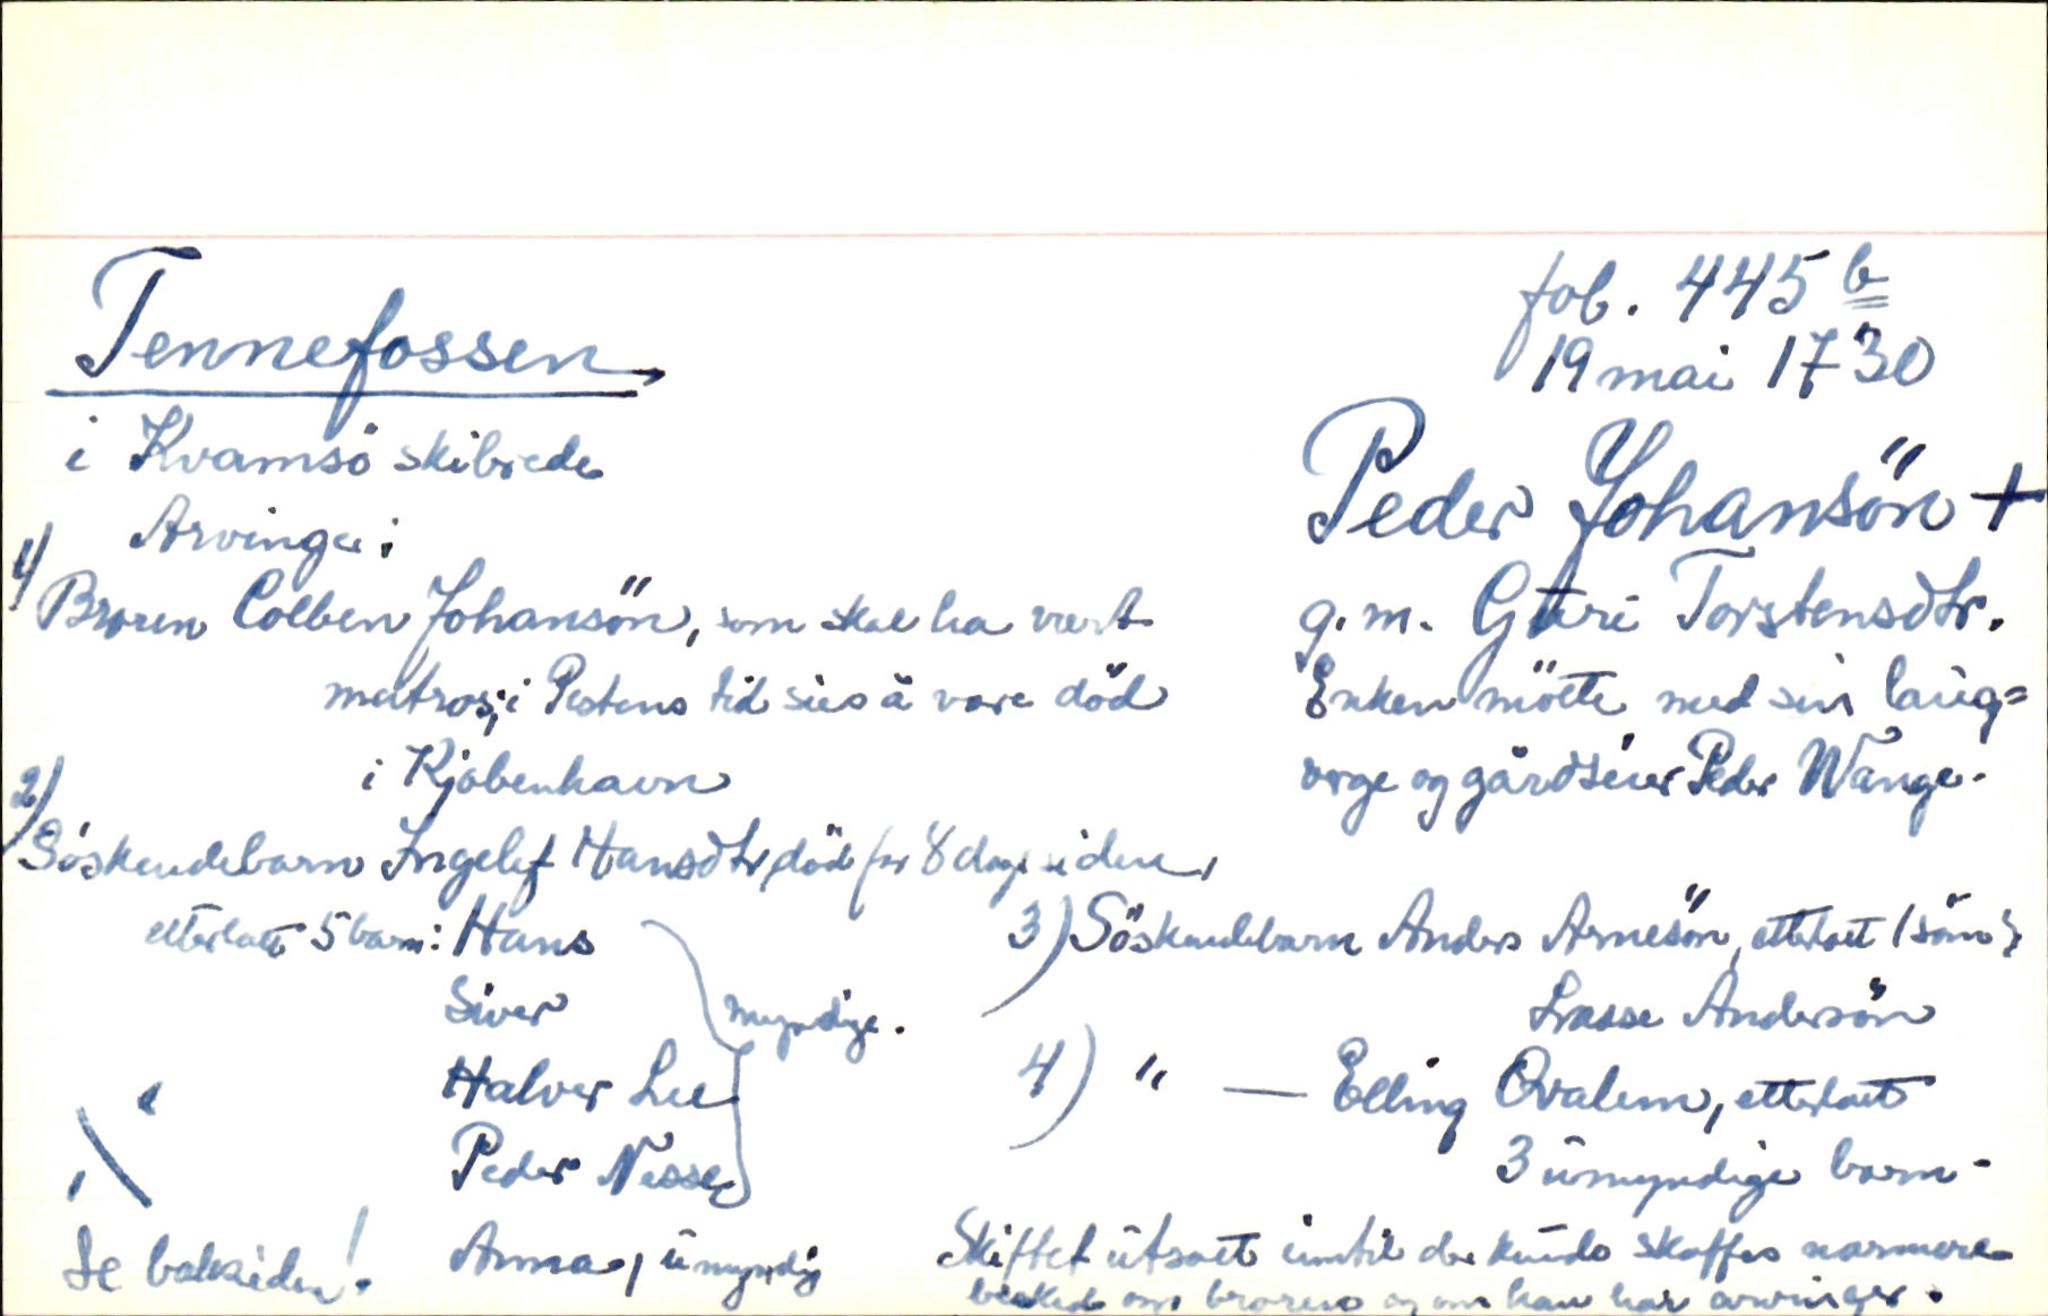 Tennefossen,
i Kvamsö skibrede
fol. 445 b
19 mai 1730
Peder Johansön +
g. m. Guri Torstensdtr.
Enken mötte med sin laug=
verge og gårdseier Peder Wange.
Arvinger:
1) Broren Colben Johansön, som skal ha vært
matros; i Pestens tid sies å være död
i Kjöbenhavn
2) Söskendebarn Ingelef Hansdtr, död for 8 dage siden,
etterlatt 5 barn: Hans
Siver
Halver Lee
Peder Nesse
myndige.
Anna, umyndig
Se baksiden!
3) Söskendebarn Anders Arnesön, etterlatt 1 sön:
Lasse Andersön
4) " — Elling Qvalem, etterlatt
3 umyndige barn.
Skiftet utsatt inntil der kunde skaffes nærmere
besked om broren og om han har arvinger.